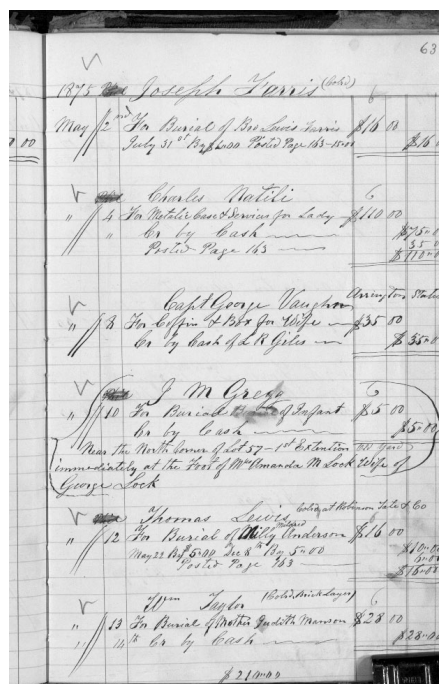 63
1875 Joseph Farris (Cold)
6
May 2nd For Burial of Bro Lewis Farris $16 00
July 31st By $1.00 Posted Page 163-15.00 $16
00
Charles Natili
6
" 4 For Metalic Case & Services for Lady $110 00
" Cr by Cash $75.00
Posted Page 163 35 00
$110.00
Capt George Vaughn Arrington Station
" 8 For Coffin & Box for Wife $35 00
Cr by Cash of L R Giles $35.00
J M Gregg
6
" 10 For Burial of Infant $5 00
Cr by Cash $5.00
Near the North Corner of Lot 57 - 1st Extention old yard
immediately at the Foot of Mrs Amanda M Lock Wife of
George Lock
Thomas Lewis Cold, at Robinson Tate & Co
" 12 For Burial of Milly Anderson $16 00
May 22 By $5.00 Dec 8th By 5.00 $10.00
Posted Page 163 6.00
$16.00
Wm Taylor (Cold, Brick Layer)
6
" 13 For Burial of Mother Judith Manson $28 00
" 14th Cr by Cash $28.00
$210.00